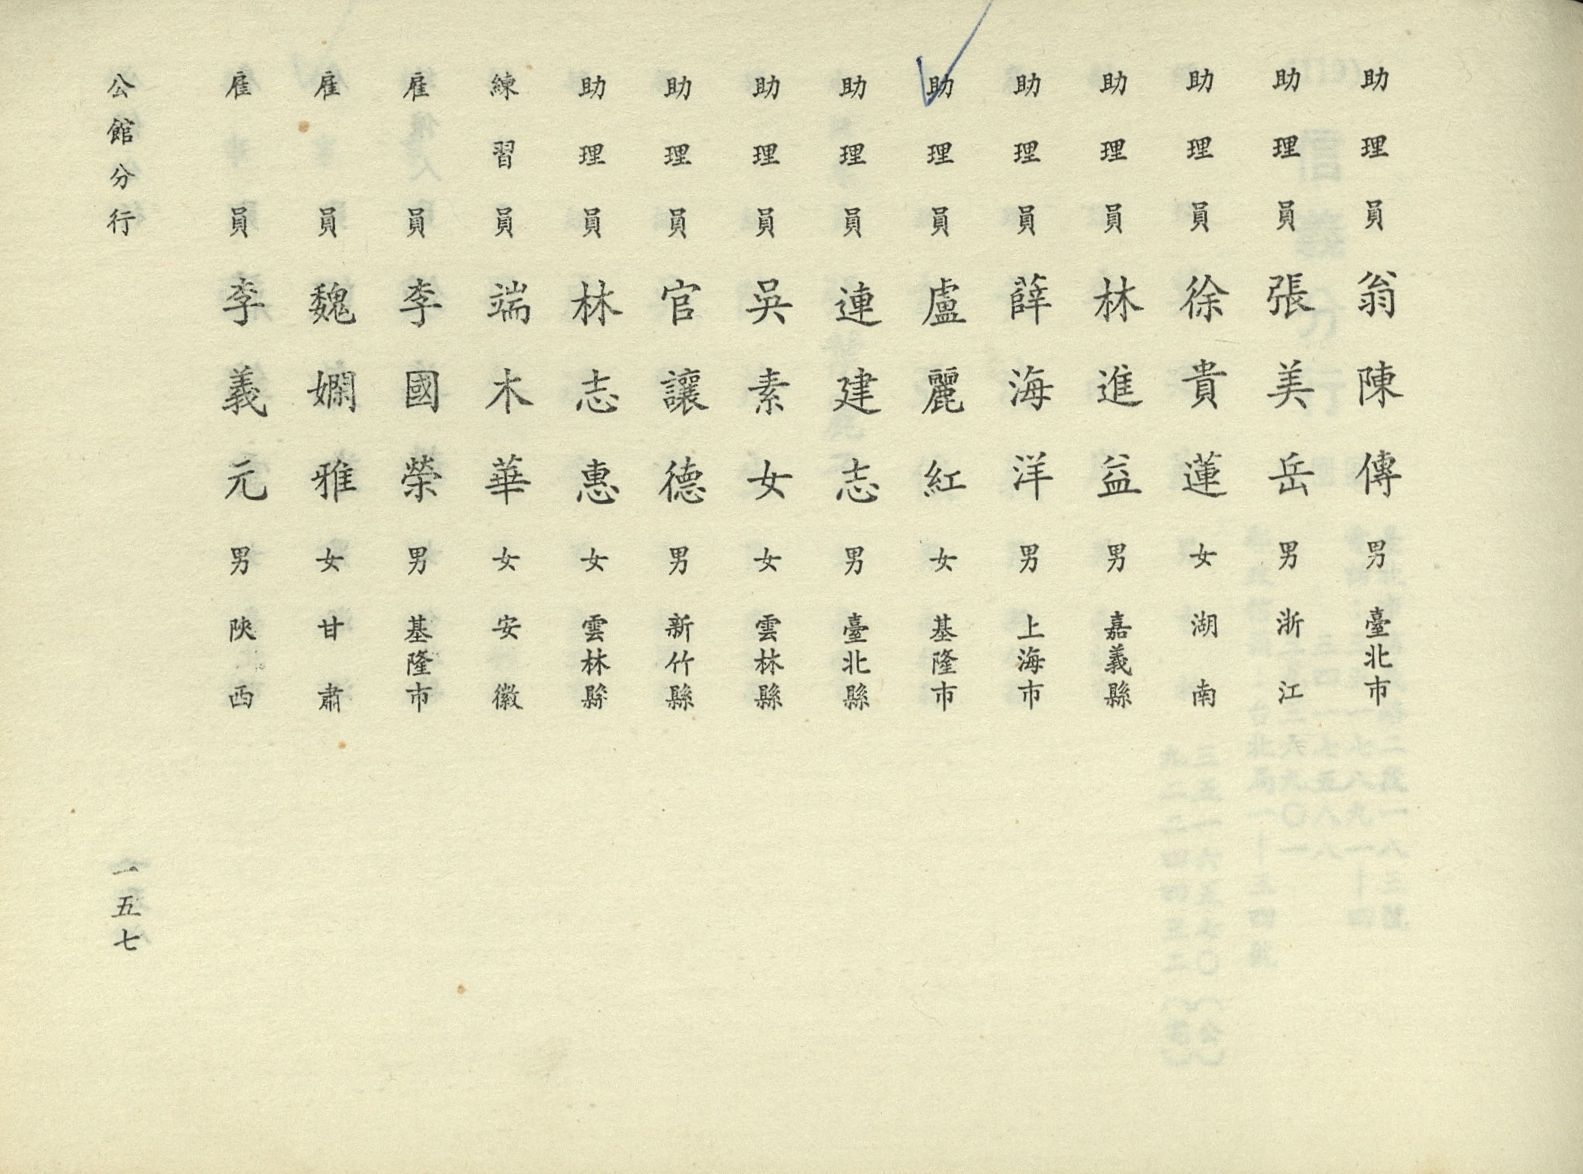 助理員 翁陳傳 男 臺北市
助理員 張美岳 男 浙江
助理員 徐貴蓮 女 湖南
助理員 林進益 男 嘉義縣
助理員 薛海洋 男 上海市
助理員 盧麗紅 女 基隆市
助理員 連建志 男 臺北縣
助理員 吳素女 女 雲林縣
助理員 官讓德 男 新竹縣
助理員 林志惠 女 雲林縣
練習員 端木華 女 安徽
雇員 李國榮 男 基隆市
雇員 魏嫻雅 女 甘肅
雇員 李義元 男 陝西
公館分行 一五七